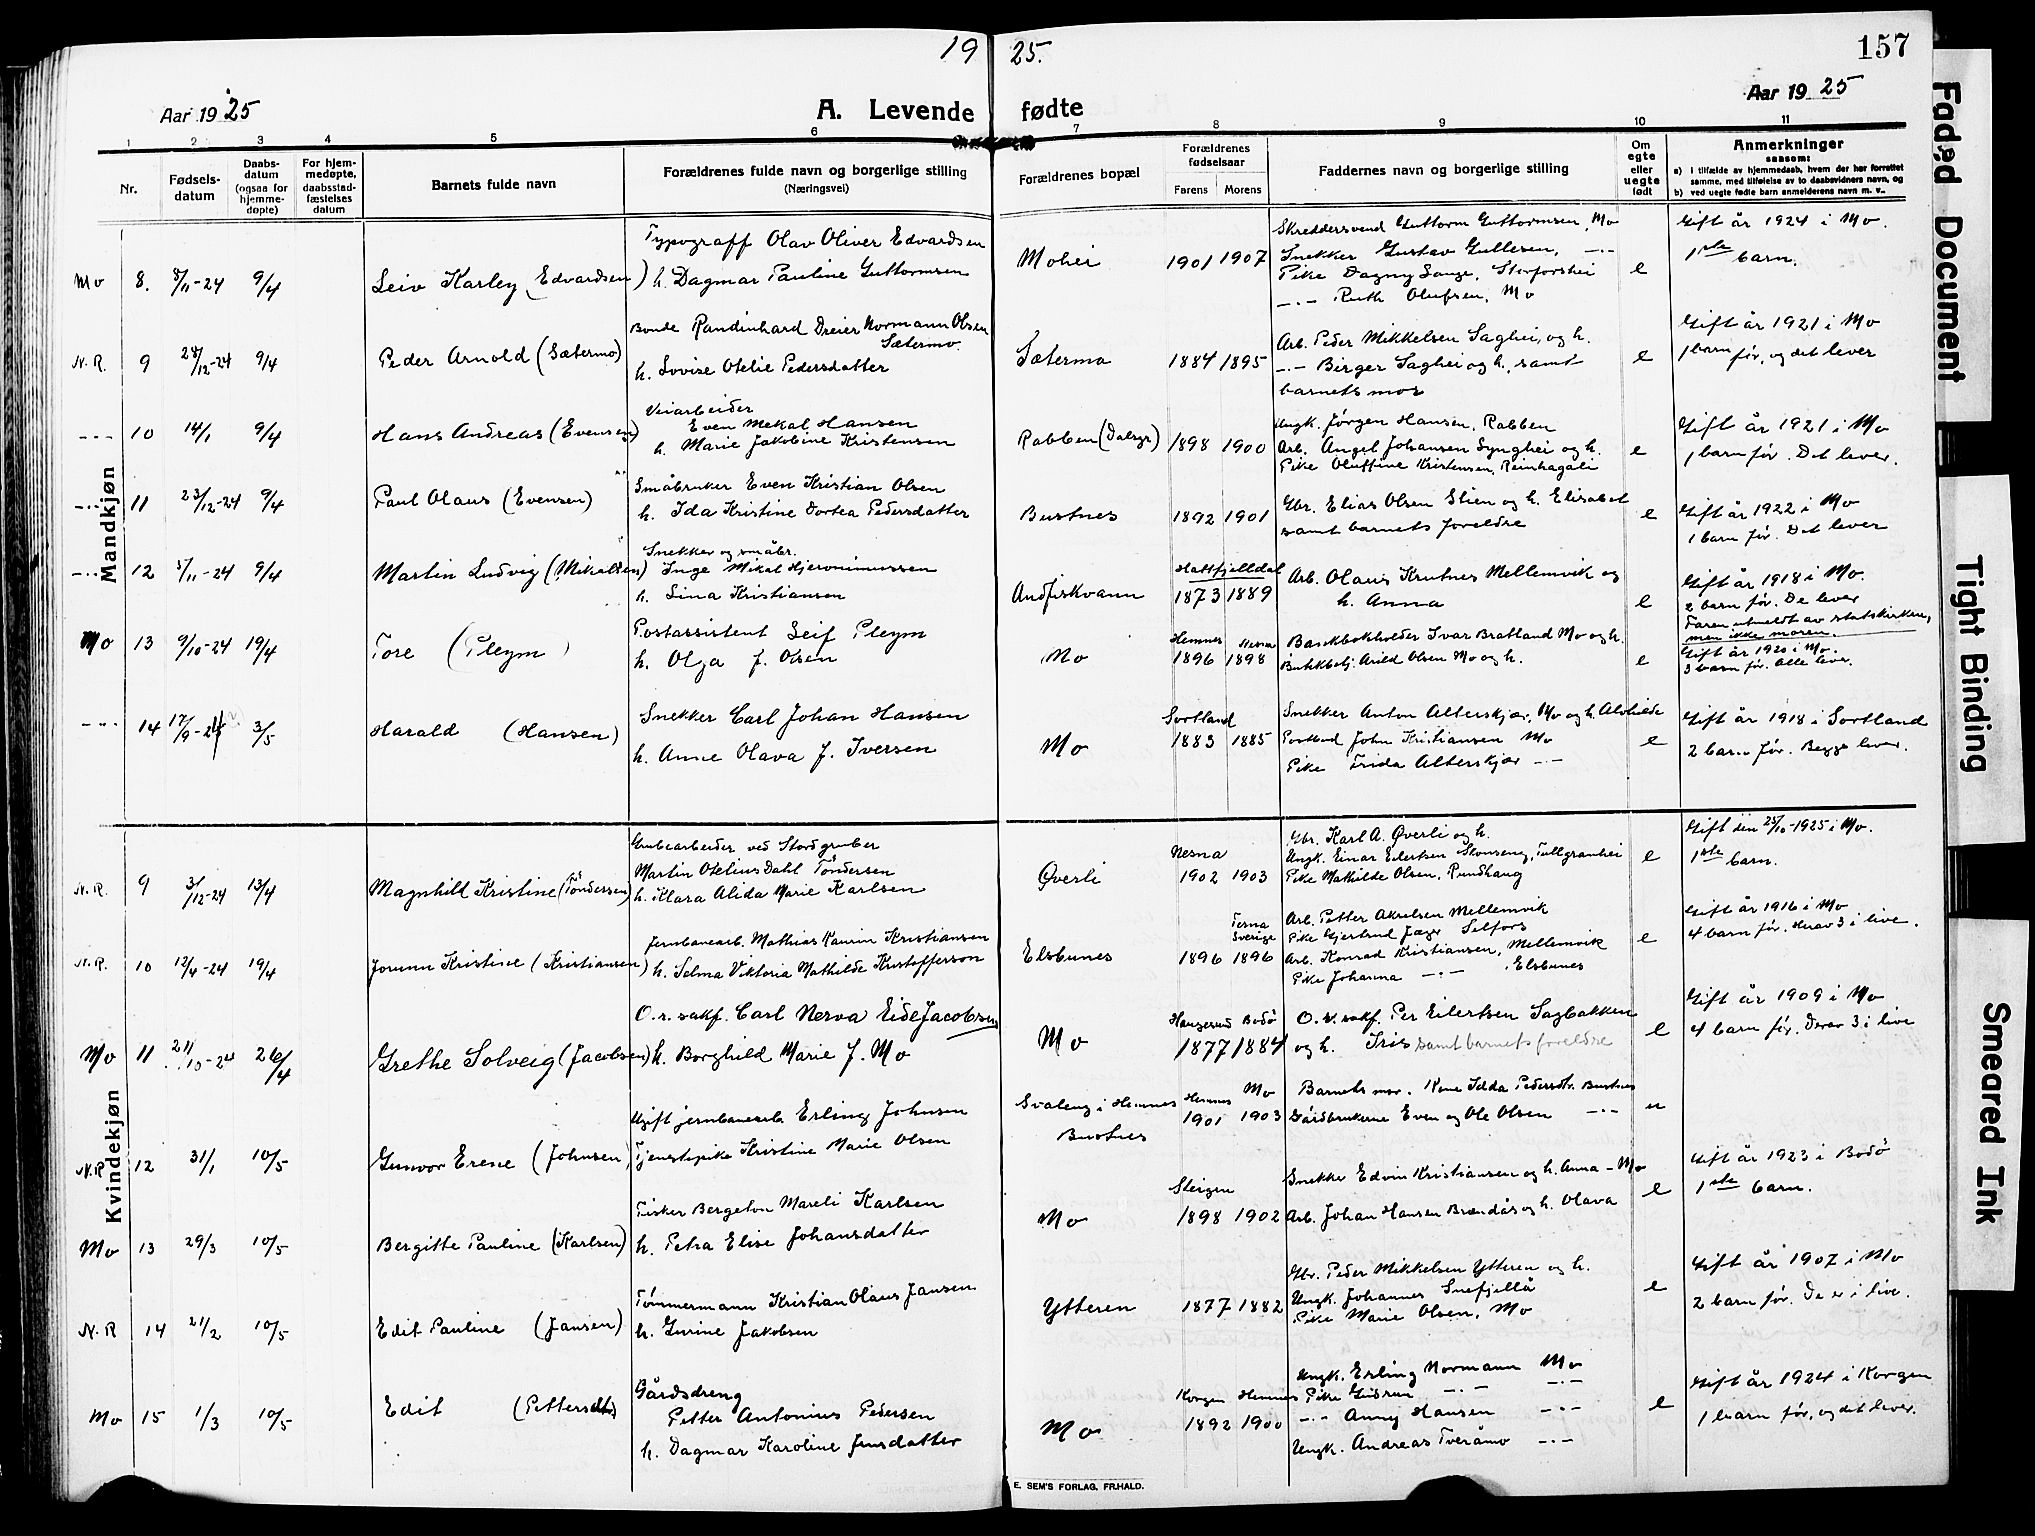 19 25.
157
Aar 1925
A. Levende fødte
Aar 1925
1 2 3 4 5 6 7 8 9 10 11
Nr.
Fødsels-
datum
Daabs-
datum
(ogsaa for
hjemme-
døpte)
For hjem-
medøpte,
daabsstad-
fæstelses
datum
Barnets fulde navn
Forældrenes fulde navn og borgerlige stilling
(Næringsvei)
Forældrenes bopæl
Forældrenes
fødselsaar
Farens Morens
Faddernes navn og borgerlige stilling
Om
egte
eller
uegte
født
Anmerkninger
saasom:
a) i tilfælde av hjemmedaab, hvem der har forrettet
samme, med tilføielse av to daabsvidners navn, og
b) ved uegte fødte barn anmelderens navn m. v.
Mandkjøn
Mo 8. 8/11-24 9/4 Leiv Karley (Edvardsen)
Typograff Olav Oliver Edvardsen
h. Dagmar Pauline Guttormsen
Mohei 1901 1907
Skreddersvend Guttorm Guttormsen, Mo
Snekker Gustav Gullesen, -·-
Pike Dagny Lange, Storforshei
-·- Ruth Olufsen, Mo
e
Gift år 1924 i Mo.
1ste barn.
N.R. 9 28/12-24 9/4 Peder Arnold (Sætermo)
Bonde Randinhard Dreier Normann Olsen
Sætermo.
h. Lovise Otelie Pedersdatter
Sætermo 1884 1895
Arb. Peder Mikkelsen Saghei, og h.
-·- Birger Saghei og h., samt
barnets mor
e
Gift år 1921 i Mo
1 barn før, og det lever
-·- 10 14/1 9/4 Hans Andreas (Evensen)
Veiarbeider
Even Mekal Hansen
h. Marie Jakobine Kristensen
Rabben 1898 1900
Ungk. Jørgen Hansen, Rabben
Arb. Angel Johansen Lynghei og h.
Pike Oluffine Kristensen, Reinhagali
e
Gift år 1921 i Mo
1 barn før. Det lever.
-·- 11 23/12-24 9/4 Paul Olaus (Evensen)
Småbruker Even Kristian Olsen
h. Ida Kristine Dortea Pedersdatter
Bustnes 1892 1901
Gbr. Elias Olsen Slien og h. Elisabet
samt barnets foreldre
e
Gift år 1922 i Mo
1 barn før. Det lever
-·- 12 8/11-24 9/4 Martin Ludvig (Mikalsen)
Snekker og småbr.
Inge Mikal Hjeronimussen
h. Lina Kristiansen
Andfiskvann
Hattfjelldal
1873 1889
Arb. Olaus Krutnes Mellemvik og
h. Anna
e
Gift år 1918 i Mo.
2 barn før. De lever
Faren utmeldt av statskirken,
men ikke moren.
Mo 13 9/10-24 19/4 Tore (Pleym)
Postassistent Leif Pleym
h. Olga f. Olsen
Mo
Hemnes Nesna
1896 1898
Bankbokholder Ivar Bratland Mo og h.
Butikkbetj. Arild Olsen Mo og h.
e
Gift år 1920 i Mo.
3 barn før. Alle lever.
-·- 14 17/9-24 3/5 Harald (Hansen)
Snekker Carl Johan Hansen
h. Anne Olava f. Iversen
Mo
Sortland
1883 1885
Snekker Anton Alterskjær, Mo og h. Alvhilde
Postbud John Kristiansen Mo
Pike Frida Alterskjær -·-
e
Gift år 1918 i Sortland
2 barn før. Begge lever.
Kvindekjøn
N.R. 9 3/12-24 13/4 Magnhild Kristine (Tøndersen)
Grubearbeider ved Stordgruber
Martin Otelius Dahl Tøndersen
h. Klara Alida Marie Karlsen
Øverli
Nesna
1902 1903
Gbr. Karl A. Øverli og h.
Ungk. Einar Eilertsen Stonseng, Tullgranhei
Pike Mathilde Olsen, Rundhaug
e
Gift den 25/10-1925 i Mo.
1ste barn.
N.R. 10 12/4-24 19/4 Jorunn Kristine (Kristiansen)
Jernbanearb. Mathias Kaurin Kristiansen
h. Selma Viktoria Mathilde Kristofferson
Elsbunes
Terna
Sverige
1896 1896
Arb. Petter Akselsen Mellemvik
Pike Gjertrud Jæger Selfors
Arb. Konrad Kristiansen, Mellemvik
Pike Johanna -·- , Elsbunes
e
Gift år 1916 i Mo
4 barn før. Herav 3 i live.
Mo 11 21/10-24 26/4 Grethe Solveig (Jacobsen)
O.r.sakf. Carl Nerva Eide Jacobsen
h. Borghild Marie f. Mo
Mo
Haugesund Bodø
1877 1884
O.r.sakf. Per Eilertsen Sagbakken
og h. Iris samt barnets foreldre
e
Gift år 1909 i Mo
4 barn før. Derav 3 i live
N.R 12 31/1 10/5 Gunvor Erene (Johnsen)
Ugift jernbanearb. Erling Johnsen
Tjenestepike Kristine Marie Olsen
Svaleng i Hemnes
Bustnes
Hemnes Mo
1901 1903
Barnets mor. Kone Idda Pedersdtr. Bustnes
Gårdbrukerne Even og Ole Olsen -·-
u
Mo 13 29/3 10/5 Bergitte Pauline (Karlsen)
Fisker Bergeton Mareli Karlsen
h. Petra Elise Johansdatter
Mo
Steigen
1898 1902
Snekker Edvin Kristiansen og h. Anna - Mo
Arb. Johan Hansen Brendås og h. Olava
e
Gift år 1923 i Bodø
1ste barn.
N.R 14 21/2 10/5 Edit Pauline (Jansen)
Tømmermann Kristian Olaus Jansen
h. Gurine Jakobsen
Ytteren 1877 1882
Gbr. Peder Mikkelsen Ytteren og h.
Ungk. Johannes Snefjellå
Pike Marie Olsen, Mo
e
Gift år 1907 i Mo
2 barn før. De er i live.
Mo 15 1/3 10/5 Edit
Gårdsdreng
Petter Antonius Pedersen
h. Dagmar Karoline Jensdatter
Mo
Korgen Hemnes
1892 1900
Ungk. Erling Normann Mo
Pike Gudrun -·- -·-
-·- Anny Hansen -·-
Ungk. Andreas Tveråmo -·-
e
Gift år 1924 i Korgen
1 barn før, og det lever.
E. SEM'S FORLAG, FR.HALD.
Faded Document
Tight Binding
Smeared Ink